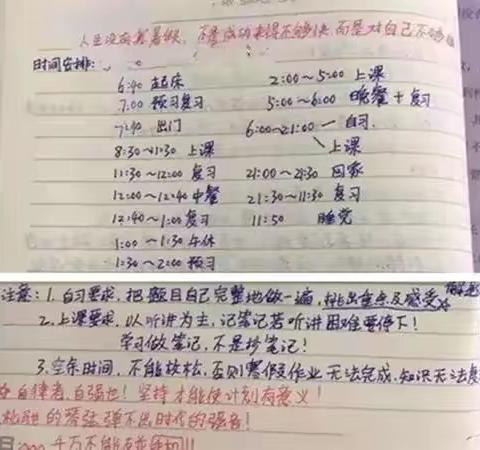 人生没有寒暑假,不是成功来得不够快,而是对自己不够
时间安排:
6:40 起床
7:00 预习复习
7:40 出门
8:30~11:30 上课
11:30~12:00 复习
12:00~12:40 中餐
12:40~1:00 复习
1:00~1:30 午休
1:30~2:00 预习
2:00~5:00 上课
5:00~6:00 晚餐+复习
6:00~21:00 自习.
上课
21:00~21:30 回家
21:30~11:30 复习
11:50 睡觉
注意:1.自习要求,把题目自己完整地做一遍,挑出重点及感受
2.上课要求,以听讲为主,记笔记若听讲困难要停下!
学习做笔记,不是抄笔记!
3.空余时间,不能放松,否则寒假作业无法完成,知识无法
自律者,自强也!坚持才能使计划有意义!
松弛的琴弦弹不出时代的强音!
千万不能